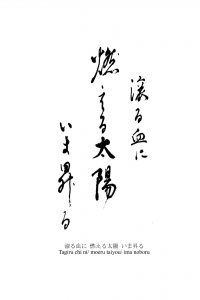 滾る血に
燃える太陽
いま昇る
滾る血に 燃える太陽 いま昇る
Tagiru chi ni/ moeru taiyou/ ima noboru